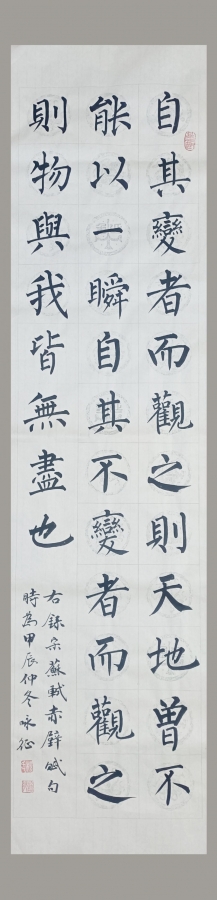 自其變者而觀之則天地曾不
能以一瞬自其不變者而觀之
則物與我皆無盡也
右錄宋蘇軾赤壁賦句
時為甲辰仲冬咏征